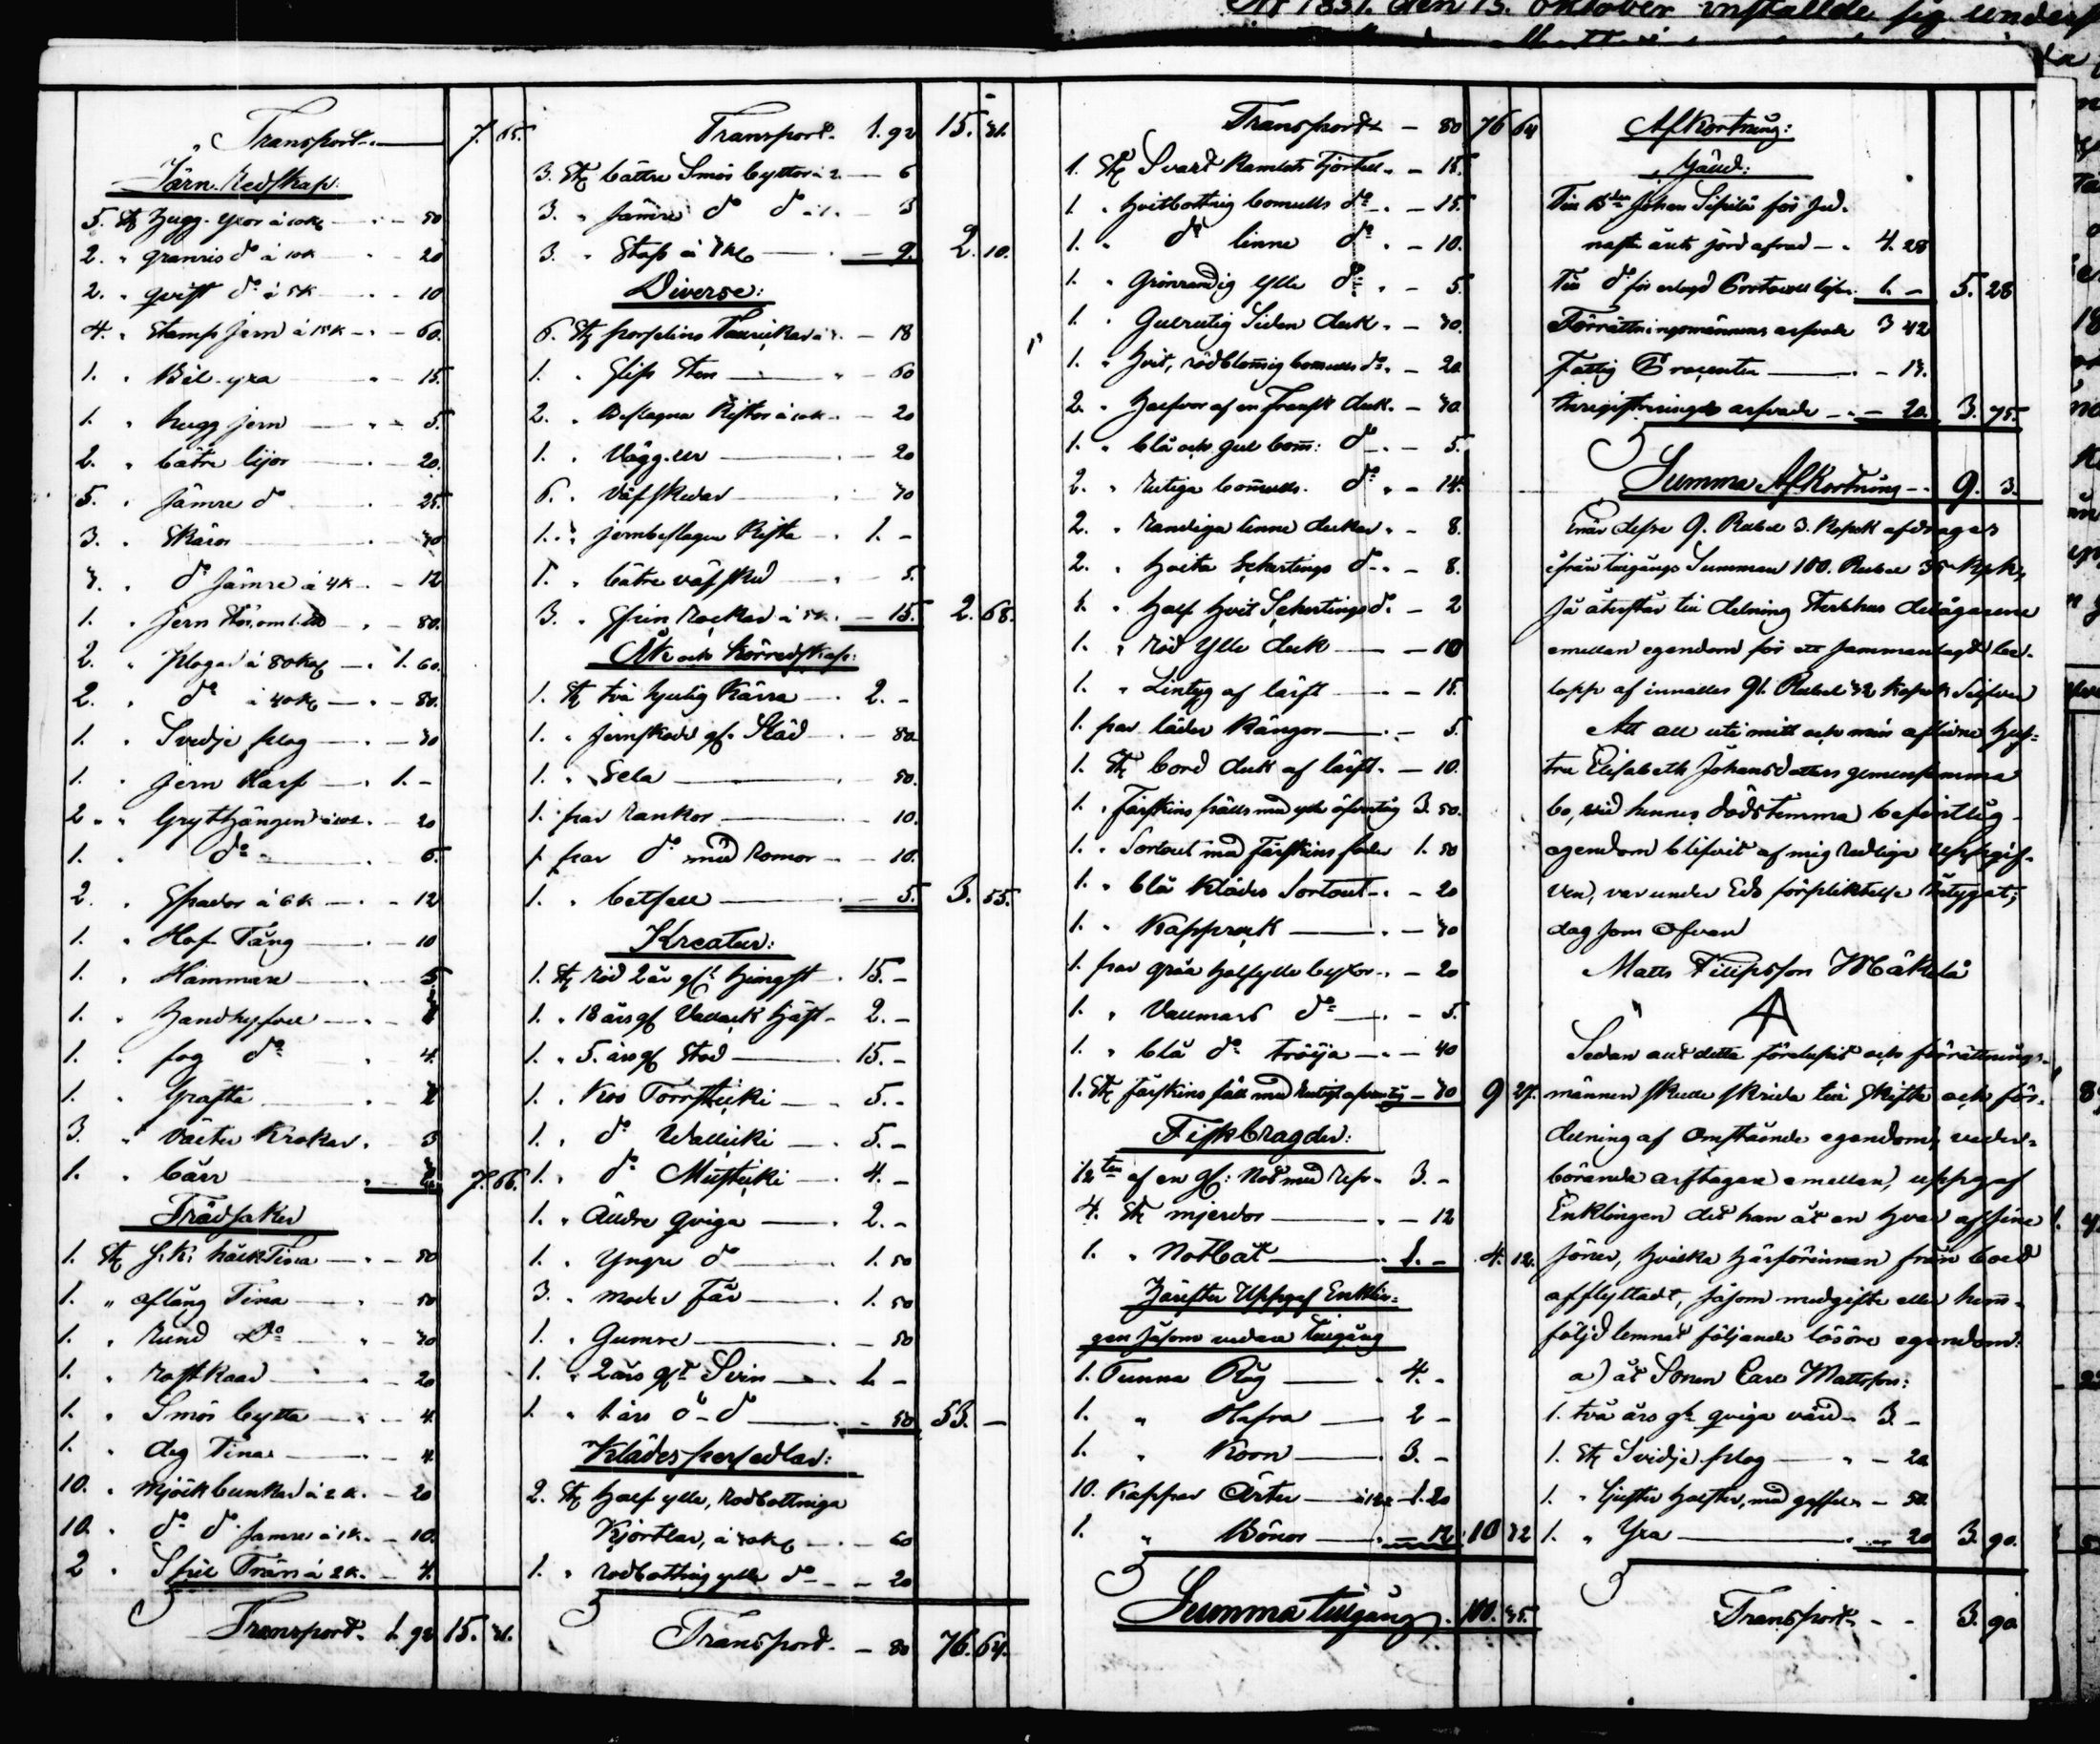 At 1851. den 13. Oktober inställde sig
Transport. 7. 65.
Järn Redskap:
5. St Hugg. yxor à 10 k — 50
2. " granris do à 10 k — 20
2. " qvist do à 5 k — 10
4. " Stamp Jern à 15 k — 60.
1. " Bil. yxa — 15.
1. " hugg jern — 5.
2. " bätre lijor — 20.
5. " Sämre do — 25.
3. " Skäror — 30
3. " do Sämre à 4 k — 12
1. " Jern Stör, om 1. — 80.
2. " plogar à 80 kop — 1. 60.
2. " do à 40 k — 80.
1. " Svedje plog — 30
1. " Jern Harf — 1. -
2. " Grythängen — 20
1. " do — 6.
2. " Spador à 6 k — 12
1. " Hof Tång — 10
1. " Hammare — 5
1. " Handhyfvel
1. " fog do — 4.
1. " Gräfta
3. " Väster Krokar. 3
1. " bärr 7. 66.
Trädsaker
1. St — 50
1. " aflång Tina — 50
1. " Rund Do — 30
1. " Rostkaar — 20
1. " Smör bytta — 4.
1. " deg Tina — 4
10. " Mjölkbunkar à 2 k. — 20
10. " do do Samre à 1 k. — 10.
2 " Spil Trän à 2 k. — 4.
Transport. 1. 92 15. 31.
Transport. 1. 92 15. 31.
3. St bättre Smör byttor à 2. — 6
3. " Sämre do do à 1. — 3
3. " Stäf à 3 k — 9. 2. 10.
Diverse:
6. St porslins Taurickar à 3. — 18
1. " Slip Sten — 60
2. " Beslagna Kistor à 10 k. — 20
1. " Vägg. ur — 20
6. " Väfskedar — 30
1. " jernbeslagen Kista — 1. -
1. " bätre väfsked — 5.
3. " Spin Rockar à 5 k. — 15. 2. 68.
Åk och Körredskap:
1. St två hjulig Kärra — 2. -
1. " Jernskodd gl. Släd — 80
1. " Sela — 50.
1. par Rankor — 10.
1. par do med Romor — 10.
1. " betsell — 5. 3. 55.
Kreatur:
1. St Röd 2 år gl. hingst. 15. -
1. " 18 års gl Vallack häst — 2. -
1. " 5. års gl Stod — 15. -
1. " Koo Torrstücki — 5. -
1. " do Wallicki — 5. -
1. " do Mustiki — 4. -
1. " Äldre qviga — 2. -
1. " Yngre do — 1. 50
3. " Moder Får — 1. 50
1. " Gumse — 50
1. " 2 års gl. Svin — 1. -
1. " 1 års do do — 50 53. -
Klädespersedlar:
2. St Half ylle, Rödbottniga
Kjortlar, à 30 k — 60
1. " rödbottnig ylle do — 20
Transport. — 80 76. 64.
Transport — 80 76 64
1. St Svart Kamlots kjortell. — 15.
1. " Hvitbottnig bomulls do — 15.
1. " do linne do — 10.
1. " Grönrandig Ylle do — 5.
1. " Gulrutig Siden duk. — 30.
1. " Hvit, rödblomig bomulls do. — 20.
2. " Halfvor af en Fransk duk. — 30
1. " blå och gul bom: do — 5.
2. " Rutiga bomulls. do — 14.
2. " Randiga linne dukar. — 8.
2. " Hvita Schertings do — 8.
1. " Half hvit Schertings do. — 2
1. " Röd Ylle duk — 10
1. " Lintyg af lärft — 15.
1. par läder Kängor — 5.
1. St bord duk af lärft. — 10.
1. " Fårskins fälls med ylle öfvertåg 3. 50.
1. " Sortout med Fårskins foder 1. 50
1. " blå Klädes Sortout — 20
1. " Kapprock — 30
1. par gråa halfylle byxor — 20
1. " Vallmars do — 5.
1. " blå do tröija — 40
1. St fårskins fäll med — 30 9 27.
Fiskbragder:
1/2 ten af en gl: Not med Rep. 3. -
4. St mjerdor — 12
1. " Notbåt — 1. - 4. 12.
Härefter Uppgaf Enklin-
gen såsom vidare tillgång
1. Tunna Råg — 4. -
1. " Hafra — 2 -
1. " Korn — 3. -
10. Kappar Ärter — 1. 20
1. " Bönor — 12. 10 32
Summa tillgång. 100. 35.
Afkortning:
Gäld:
Till Bden Johan Sipilä för
nästa års jord afrad — 4. 28
Till do för erlagd Protocoll 1. - 5. 28
Förrättningsmännens arfvode 3 42
Fattig Procenter — 13.
Inregistrerings arfvode — 20. 3. 75.
Summa Afkortning — 9. 3.
Enär desse 9. Rubel 3. Kopek afdrages
ifrån tillgångs Summan 100. Rubel 35 Kpk,
så återstår till delning Sterbhus delägarene
emellan egendom för ett sammanlagdt be-
lopp af innalles 91. Rubel 32 kopek Silfver
Att all uti mitt och min aflidne hus-
tru Elisabeth Johansdotters gemensamma
bo, vid hennes dödstimma befintlig
egendom blifvit af mig redligen uppgif-
ven, var under Eds förpliktelse betygat;
dag som ofvan
Matts Filipsson Mäkelä
Sedan allt detta förelupit och förrättnings-
männen skulle skrida till skifte och för-
delning af omstående egendom, veder-
börande arftagare emellan, uppgaf
Enklingen det han åt en hvar af sine
söner, hvilka härförinnan från boet
afflyttadt, såsom medgifte eller hem-
följd lemnat följande lösöre egendom:
a) åt Sonen Carl Mattsson:
1. två års gl. qviga värd — 3. -
1. St Svidje plog — 20
1. " halster, med gaffel — 50.
1. " Yxa — 20 3. 90.
Transport — 3. 90